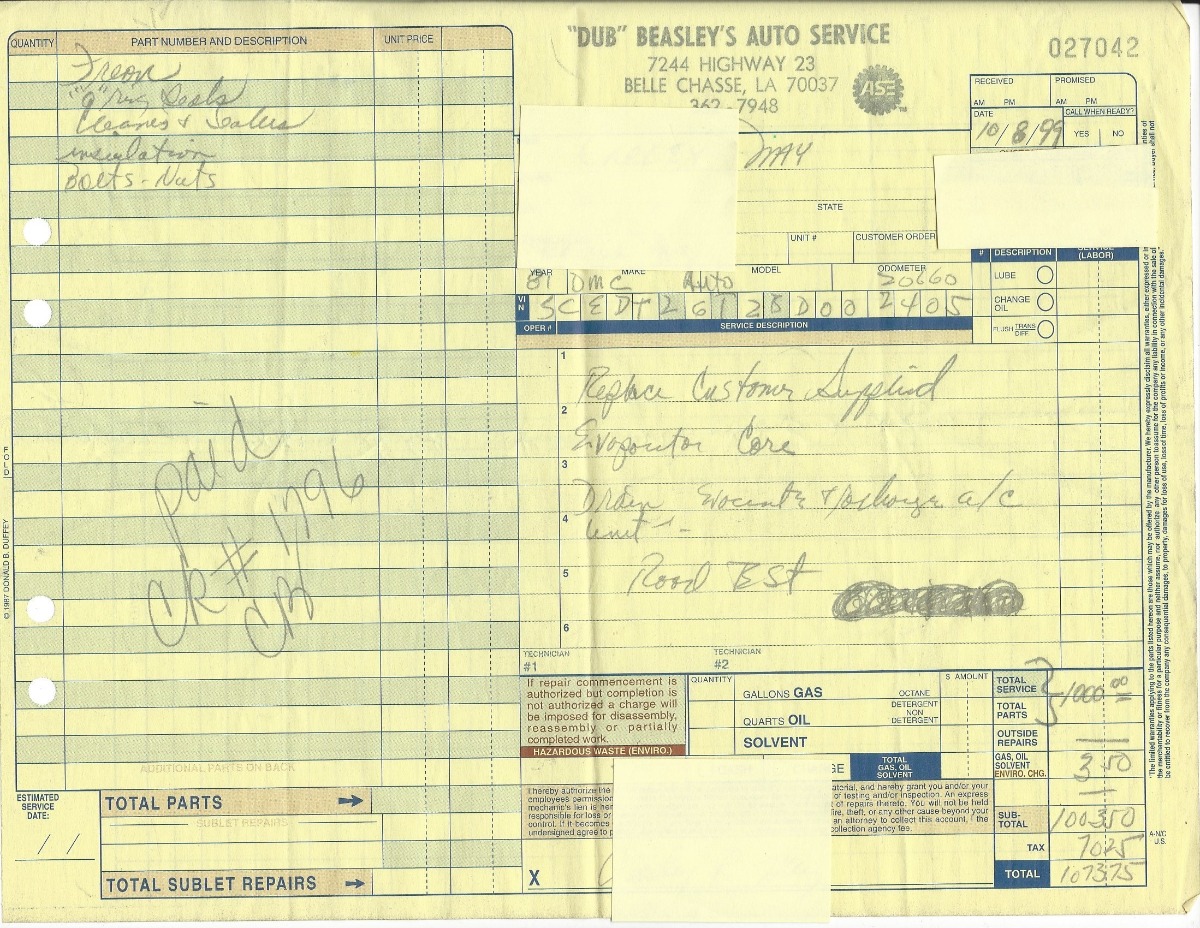 "DUB" BEASLEY'S AUTO SERVICE
7244 HIGHWAY 23
BELLE CHASSE, LA 70037
362-7948
ASE
027042
QUANTITY PART NUMBER AND DESCRIPTION UNIT PRICE
Freon
"O" ring Seals
Cleaner & Sealers
insulation
Bolts - Nuts
paid
Ck# 1796
CB
FOLD
© 1987 DONALD B. DUFFEY
ADDITIONAL PARTS ON BACK
ESTIMATED
SERVICE
DATE:
/ /
TOTAL PARTS
SUBLET REPAIRS
TOTAL SUBLET REPAIRS
RECEIVED PROMISED
AM PM AM PM
DATE CALL WHEN READY?
10/8/99 YES NO
MAY
STATE
UNIT # CUSTOMER ORDER
YEAR MAKE MODEL ODOMETER
81 DMC Auto 20660
VIN SCEDT26T2BD002405
OPER # SERVICE DESCRIPTION
# DESCRIPTION SERVICE (LABOR)
LUBE
CHANGE OIL
FLUSH TRANS DIFF.
1
Replace Customer Supplied
2
Evaporator Core
3
Drain Evacuate & recharge a/c
4
unit -
5
Road Test
6
TECHNICIAN #1 TECHNICIAN #2
If repair commencement is
authorized but completion is
not authorized a charge will
be imposed for disassembly,
reassembly or partially
completed work.
HAZARDOUS WASTE (ENVIRO.)
QUANTITY $ AMOUNT
GALLONS GAS OCTANE
QUARTS OIL DETERGENT NON DETERGENT
SOLVENT
GE TOTAL GAS, OIL SOLVENT
I hereby authorize the
employees permission
mechanic's lien is her
responsible for loss or
control. If it becomes
undersigned agree to p
aterial, and hereby grant you and/or your
of testing and/or inspection. An express
of repairs thereto. You will not be held
fire, theft, or any other cause beyond your
an attorney to collect this account, I the
collection agency fee.
X
TOTAL SERVICE
TOTAL PARTS 1000 00
OUTSIDE REPAIRS —
GAS, OIL SOLVENT ENVIRO. CHG. 3 50
SUB-TOTAL 1003 50
TAX 70 25
TOTAL 1073 75
A-N/C
U.S.